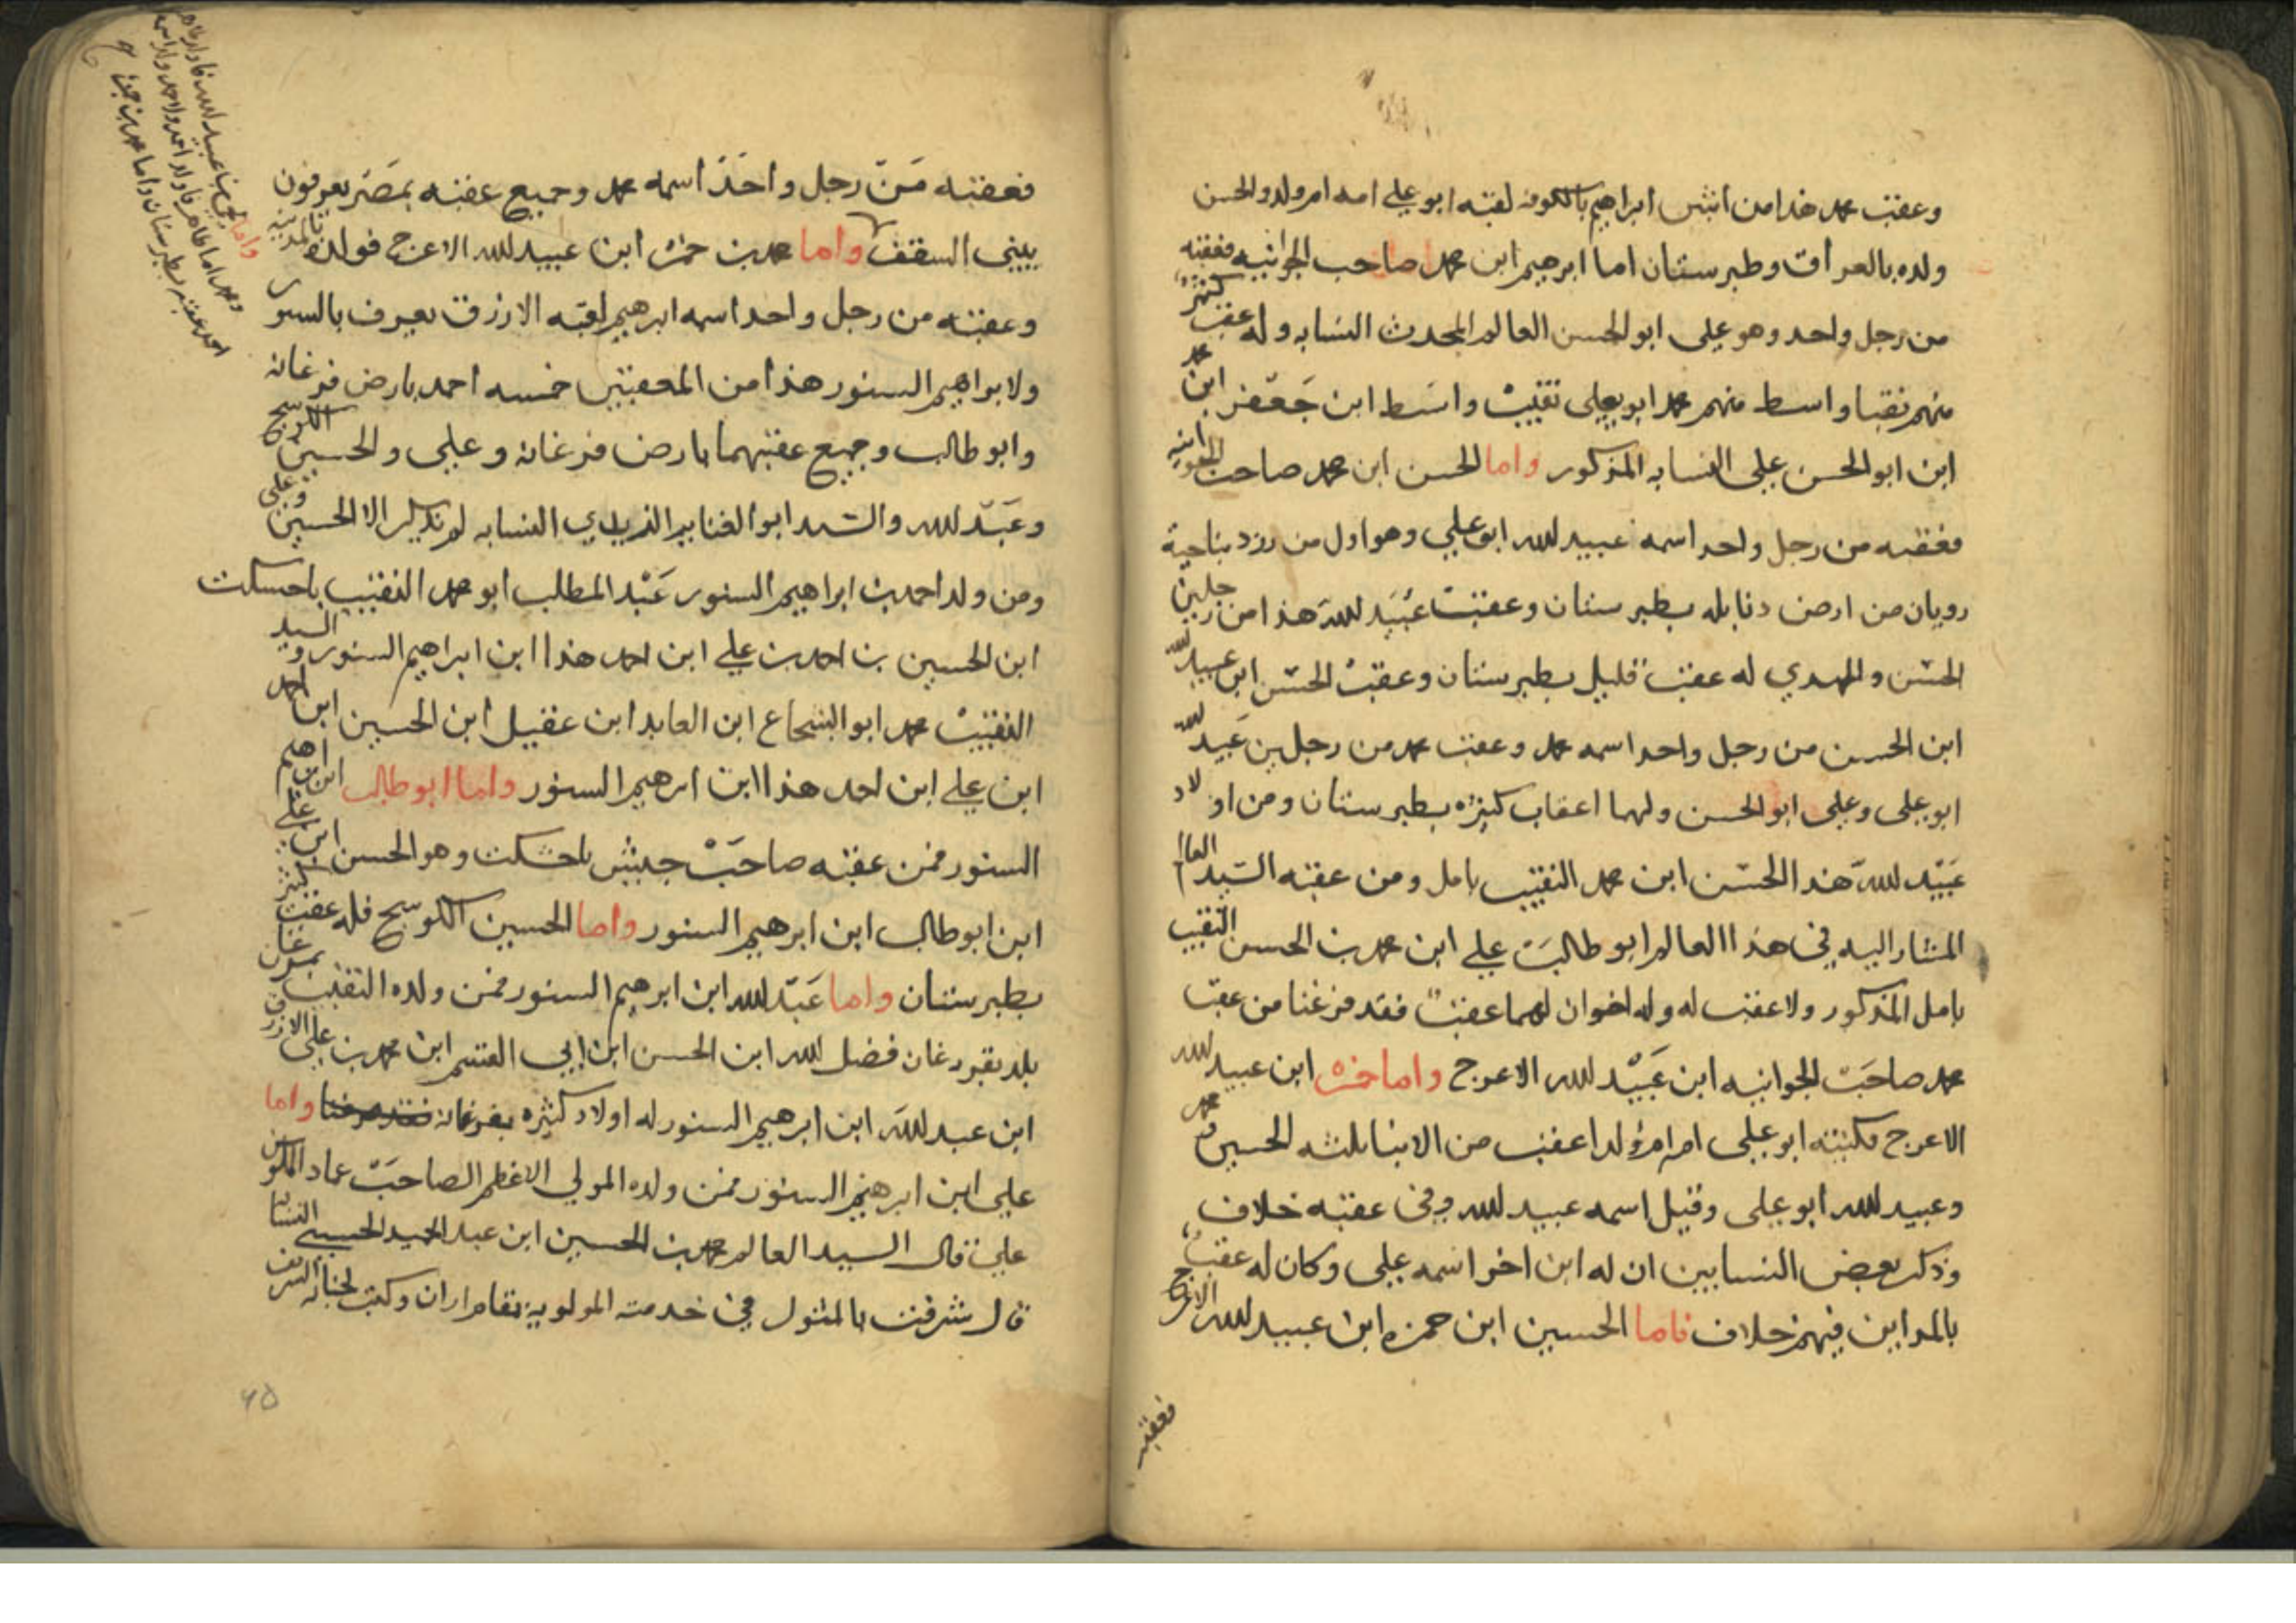 وعقب محمد هذا من اثنين ابراهيم بالكوفه لقبه ابو علي امه ام ولد والحسن
ولده بالعراق وطبرستان اما ابرهيم ابن محمد صاحب الجوانيه فعقبه
من رجل واحد وهو علي ابو الحسن العالم المحدث النسابه وله عقب كثير
منهم نقبا واسط منهم محمد ابو يعلى نقيب واسط ابن جعفر ابن محمد
ابن ابو الحسن علي النسابه المذكور واما الحسن ابن محمد صاحب الجوانيه
فعقبه من رجل واحد اسمه عبيد الله ابو علي وهو اول من ورد بناحية
رويان من ارض بطبرستان وعقب عبيد الله هذا من رجلين
الحسن والمهدي له عقب قليل بطبرستان وعقب الحسن ابن عبيد الله
ابن الحسن من رجل واحد اسمه محمد وعقب محمد من رجلين عبيد الله
ابو علي وعلي ابو الحسن ولهما اعقاب كثيره بطبرستان ومن اولاد
عبيد الله هذا الحسن ابن محمد النقيب بامل ومن عقبه السيد العالم
المشار اليه في هذا العالم ابو طالب علي ابن محمد بن الحسن النقيب
بامل المذكور ولا عقب له وله اخوان لهما عقب فقد فرغنا من عقب
محمد صاحب الجوانيه ابن عبيد الله الاعرج واما حمزه ابن عبيد الله
الاعرج فكنيته ابو علي امه ام ولد اعقب من الابنا ثلثه الحسين ومحمد
وعبيد الله ابو علي وقيل اسمه عبيد الله وفي عقبه خلاف
وذكر بعض النسابين ان له ابن اخر اسمه علي وكان له عقب
بالمداين فيهم خلاف فاما الحسين ابن حمزه ابن عبيد الله الاعرج
فعقبه
فعقبه من رجل واحد اسمه محمد وجميع عقبه بمصر يعرفون
ببني السقف واما محمد بن حمزه ابن عبيد الله الاعرج فولده بالمدينه
وعقبه من رجل واحد اسمه ابرهيم لقبه الازرق يعرف بالسنور
ولابراهيم السنور هذا من المعقبين خمسه احمد بارض فرغانه
وابو طالب وجميع عقبهما بارض فرغانه وعلي والحسين الكوسج
وعبد الله والسيد ابو الغنايم الزيدي النسابه لم يذكر الا الحسين وعلي
ومن ولد احمد بن ابراهيم السنور عبد المطلب ابو محمد النقيب باخسكت
ابن الحسين بن احمد بن علي ابن احمد هذا ابن ابراهيم السنور والسيد
النقيب محمد ابو الشجاع ابن العابد ابن عقيل ابن الحسين ابن احمد
ابن علي ابن احمد هذا ابن ابرهيم السنور واما ابو طالب ابن ابراهيم
السنور فمن عقبه صاحب جيش باخسكت وهو الحسن ابن علي
ابن ابو طالب ابن ابرهيم السنور واما الحسين الكوسج فله عقب كثير
بطبرستان واما عبد الله ابن ابرهيم السنور فمن ولده النقيب
بلد فضل الله ابن الحسن ابن ابي القسم ابن محمد بن علي الازرق
ابن عبد الله ابن ابرهيم السنور له اولاد كثيره بفرغانه واما
علي ابن ابرهيم السنور فمن ولده المولي الاعظم الصاحب عماد
علي قال السيد العالم محمد بن الحسين ابن عبد الحميد الحسيني النسابه
قال شرفت بالمثول في خدمة المولويه وكتب لجنابه الشريف
واما عبيد الله
٤٥